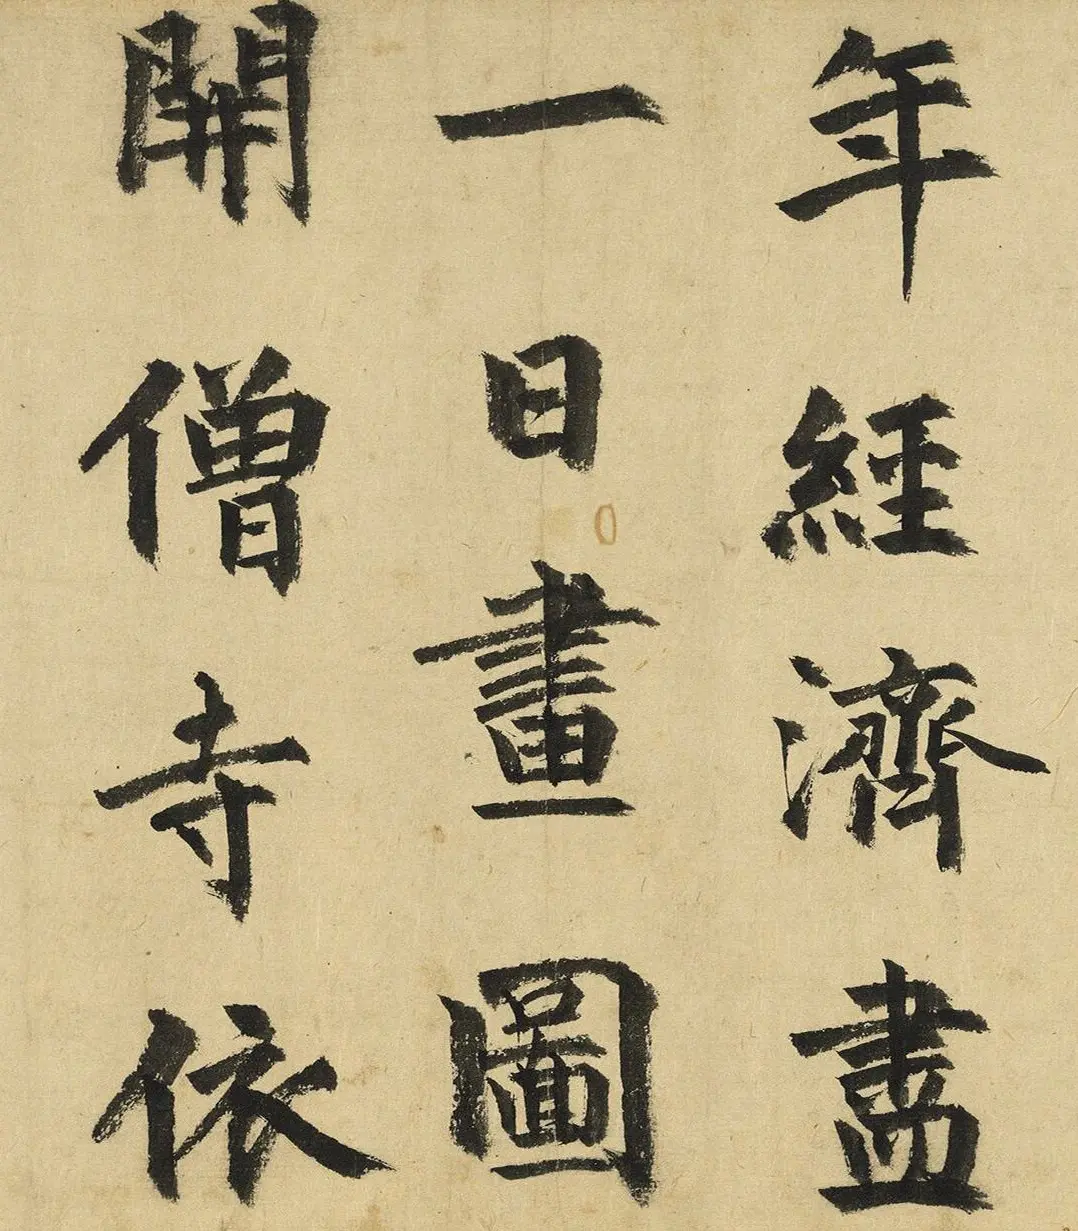 年經濟盡
一日畫圖
開僧寺依